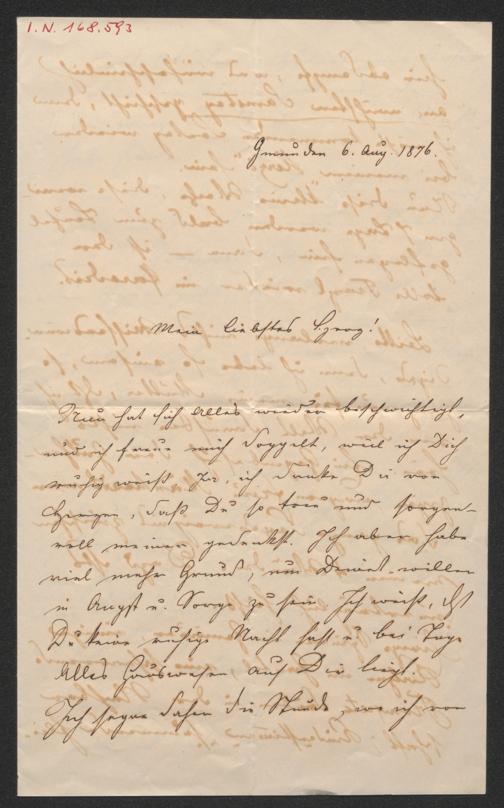 I.N. 168.593
Gmunden 6. Aug. 1876.
Mein liebstes Herz!
Nun hat sich Alles wieder beschwichtigt,
und ich freue mich doppelt, weil ich Dich
ruhig weiß. Ja, ich danke Dir von
Herzen, daß Du so treu und sorgen-
voll meiner gedenkst. Ich aber habe
viel mehr Grund, um Deinet willen
in Angst u. Sorge zu sein. Ich weiß, daß
Du keine ruhige Nacht hast u. bei Tage
Alles Hauswesen auf Dir liegt.
Ich segne daher die Stunde, wo ich von